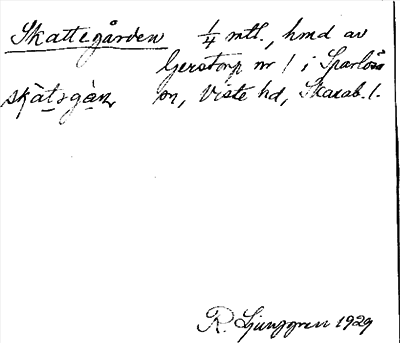 Skattegården 1/4 mtl., hmd av
Gerstorp nr 1 i Sparlösa
skàtsgàṇ sn, Viste hd, Skarab. l.
R. Ljunggren 1929